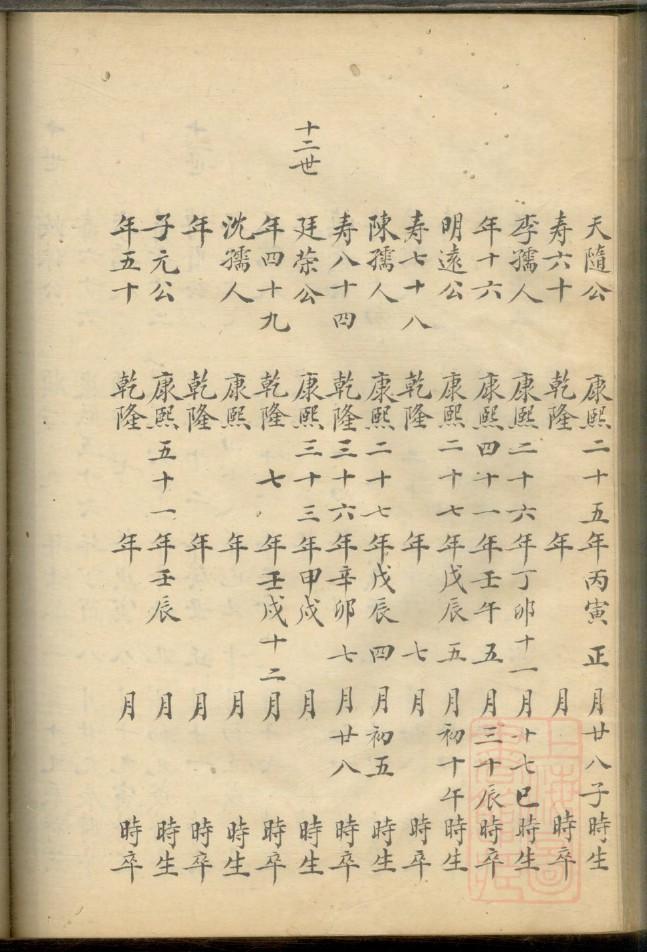 十二世
天隨公 康熙二十五年丙寅正月廿八子時生
寿六十 乾隆 年 月 時卒
李孺人 康熙二十六年丁卯十一月十七巳時生
年十六 康熙四十一年壬午五月三十辰時卒
明遠公 康熙二十七年戊辰五月初十午時生
寿七十八 乾隆 年 七月 時卒
陳孺人 康熙二十七年戊辰四月初五 時生
寿八十四 乾隆三十六年辛卯七月廿八 時卒
廷荣公 康熙三十三年甲戌 月 時生
年四十九 乾隆 七年壬戌十二月 時卒
沈孺人 康熙 年 月 時生
年 乾隆 年 月 時卒
子元公 康熙五十一年壬辰 月 時生
年五十 乾隆 年 月 時卒